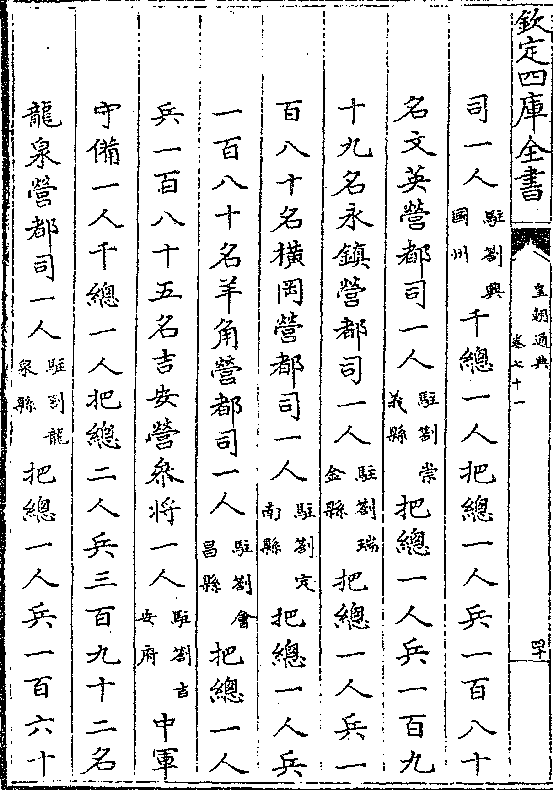 欽定四庫全書
皇朝通典
卷七十一
四十
司一人駐劄興國州千總一人把總一人兵一百八十
名文英營都司一人駐劄崇義縣把總一人兵一百九
十九名永鎮營都司一人駐劄瑞金縣把總一人兵一
百八十名橫岡營都司一人駐劄定南縣把總一人兵
一百八十名羊角營都司一人駐劄會昌縣把總一人
兵一百八十五名吉安營叅将一人駐劄吉安府中軍
守備一人千總一人把總二人兵三百九十二名
龍泉營都司一人駐劄龍泉縣把總一人兵一百六十